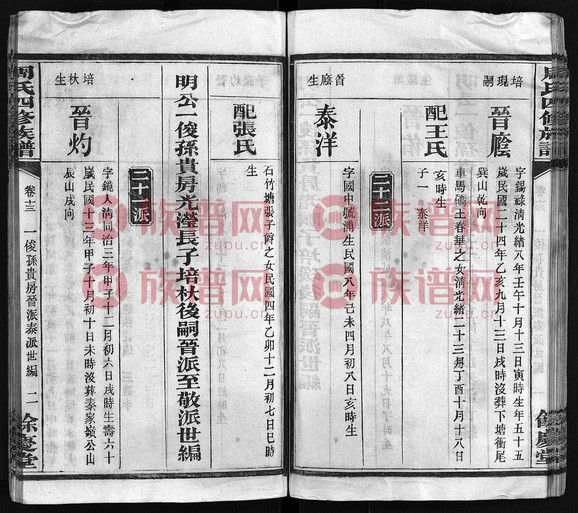 周氏四修族譜
培現嗣
晉艩
字錫祿清光緒八年壬午十月十三日寅時生年五十五
歲民國二十四年乙亥九月十三日戌時沒葬下塘衝尾
巽山乾向
配王氏
車馬碼王春華之女清光緒二十三年丁酉十月十八日
亥時生
子一 泰洋
三十二派
晉艩生
泰洋
字國中號清生民國八年己未四月初八日亥時生
配張氏
石竹塘張子爵之女民國四年乙卯十二月初七日巳時
生
明公一俊孫貴房光瀅長子培秋後嗣晉派至敬派世編
三十一派
培秋生
晉灼
字鏡人清同治三年甲子十二月初六日戌時生壽六十
歲民國十三年甲子十月初十日未時沒葬秦家嶺公山
辰山戌向
周氏四修族譜
卷十三
一俊孫貴房晉派泰派世編
二
餘慶堂
餘慶堂
族谱网
zupu.cn
族谱网
zupu.cn
族谱网
zupu.cn
族谱网
zupu.cn